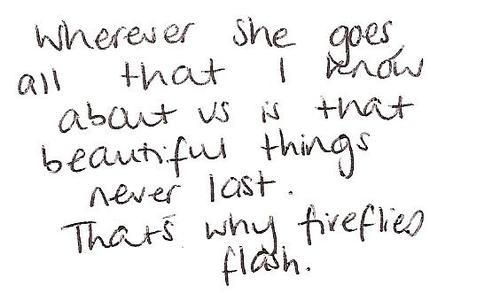 Wherever she goes,
all that I know
about us is that
beautiful things
never last.
That's why fireflies
flash.